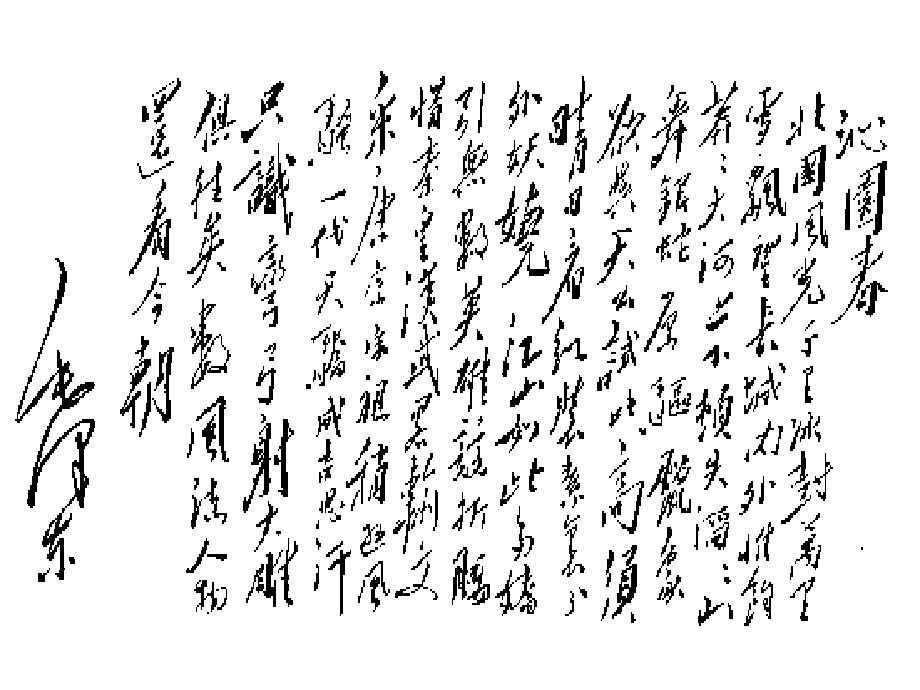 沁園春
北國風光千里冰封萬里
雪飄望長城內外惟餘
莽〻大河上下頓失滔〻山
舞銀蛇原驅臘象
欲與天公試比高須
晴日看紅裝素裹分
外妖嬈 江山如此多嬌
引無數英雄競折腰
惜秦皇漢武略輸文
采唐宗宋祖稍遜風
騷一代天驕成吉思汗
只識彎弓射大雕
俱往矣數風流人物
還看今朝
毛澤東